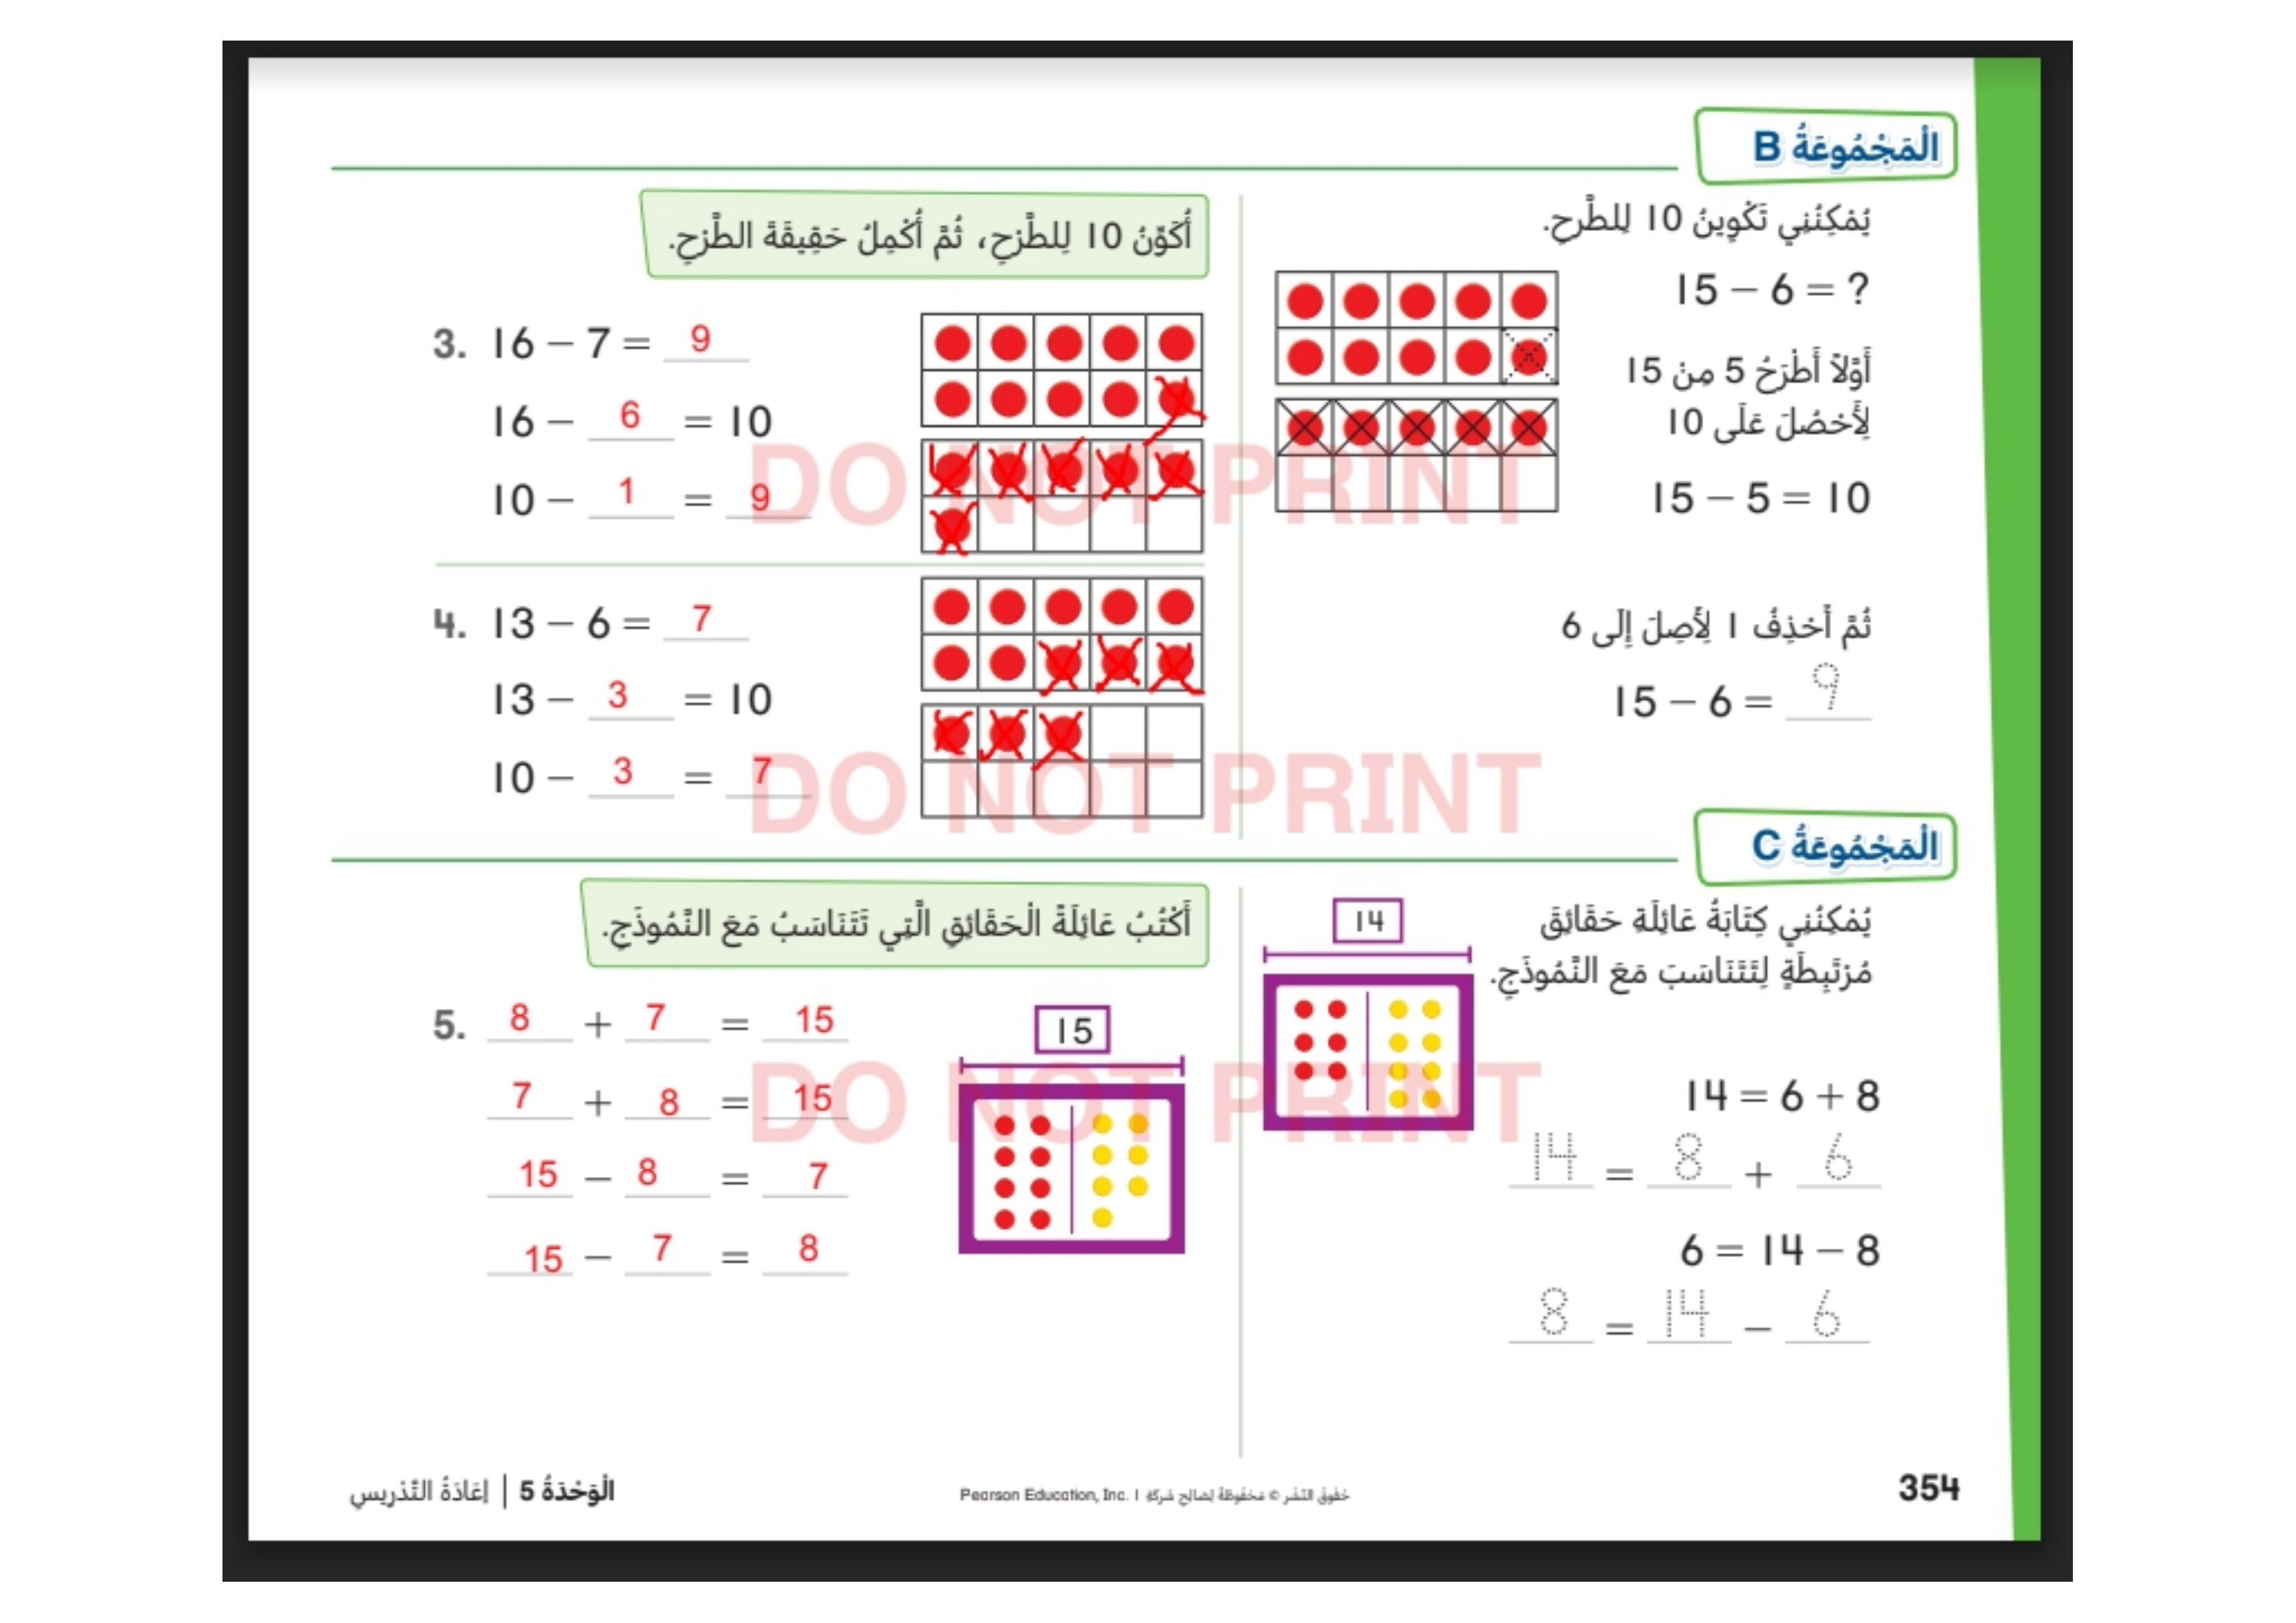 الْمَجْمُوعَةُ B
يُمْكِنُنِي تَكْوِينُ 10 لِلطَّرحِ.
15 − 6 = ?
أَوَّلاً أَطْرَحُ 5 مِنْ 15
لِأَحْصُلَ عَلَى 10
15 − 5 = 10
ثُمَّ أَحْذِفُ 1 لِأَصِلَ إِلَى 6
15 − 6 = 9
أُكَوِّنُ 10 لِلطَّرْحِ، ثُمَّ أُكْمِلُ حَقِيقَةَ الطَّرْحِ.
3. 16 − 7 = 9
16 − 6 = 10
10 − 1 = 9
4. 13 − 6 = 7
13 − 3 = 10
10 − 3 = 7
DO NOT PRINT
DO NOT PRINT
الْمَجْمُوعَةُ C
يُمْكِنُنِي كِتَابَةُ عَائِلَةِ حَقَائِقَ
مُرْتَبِطَةٍ لِتَتَنَاسَبَ مَعَ النَّمُوذَجِ.
14
14 = 6 + 8
14 = 8 + 6
6 = 14 − 8
8 = 14 − 6
أَكْتُبُ عَائِلَةَ الْحَقَائِقِ الَّتِي تَتَنَاسَبُ مَعَ النَّمُوذَجِ.
15
5. 8 + 7 = 15
7 + 8 = 15
15 − 8 = 7
15 − 7 = 8
DO NOT PRINT
354
حُقُوقُ النَّشْر © مَحْفُوظَةٌ لِصَالِحِ شَرِكَةِ Pearson Education, Inc. 1
الْوَحْدَةُ 5 | إِعَادَةُ التَّدْرِيسِ